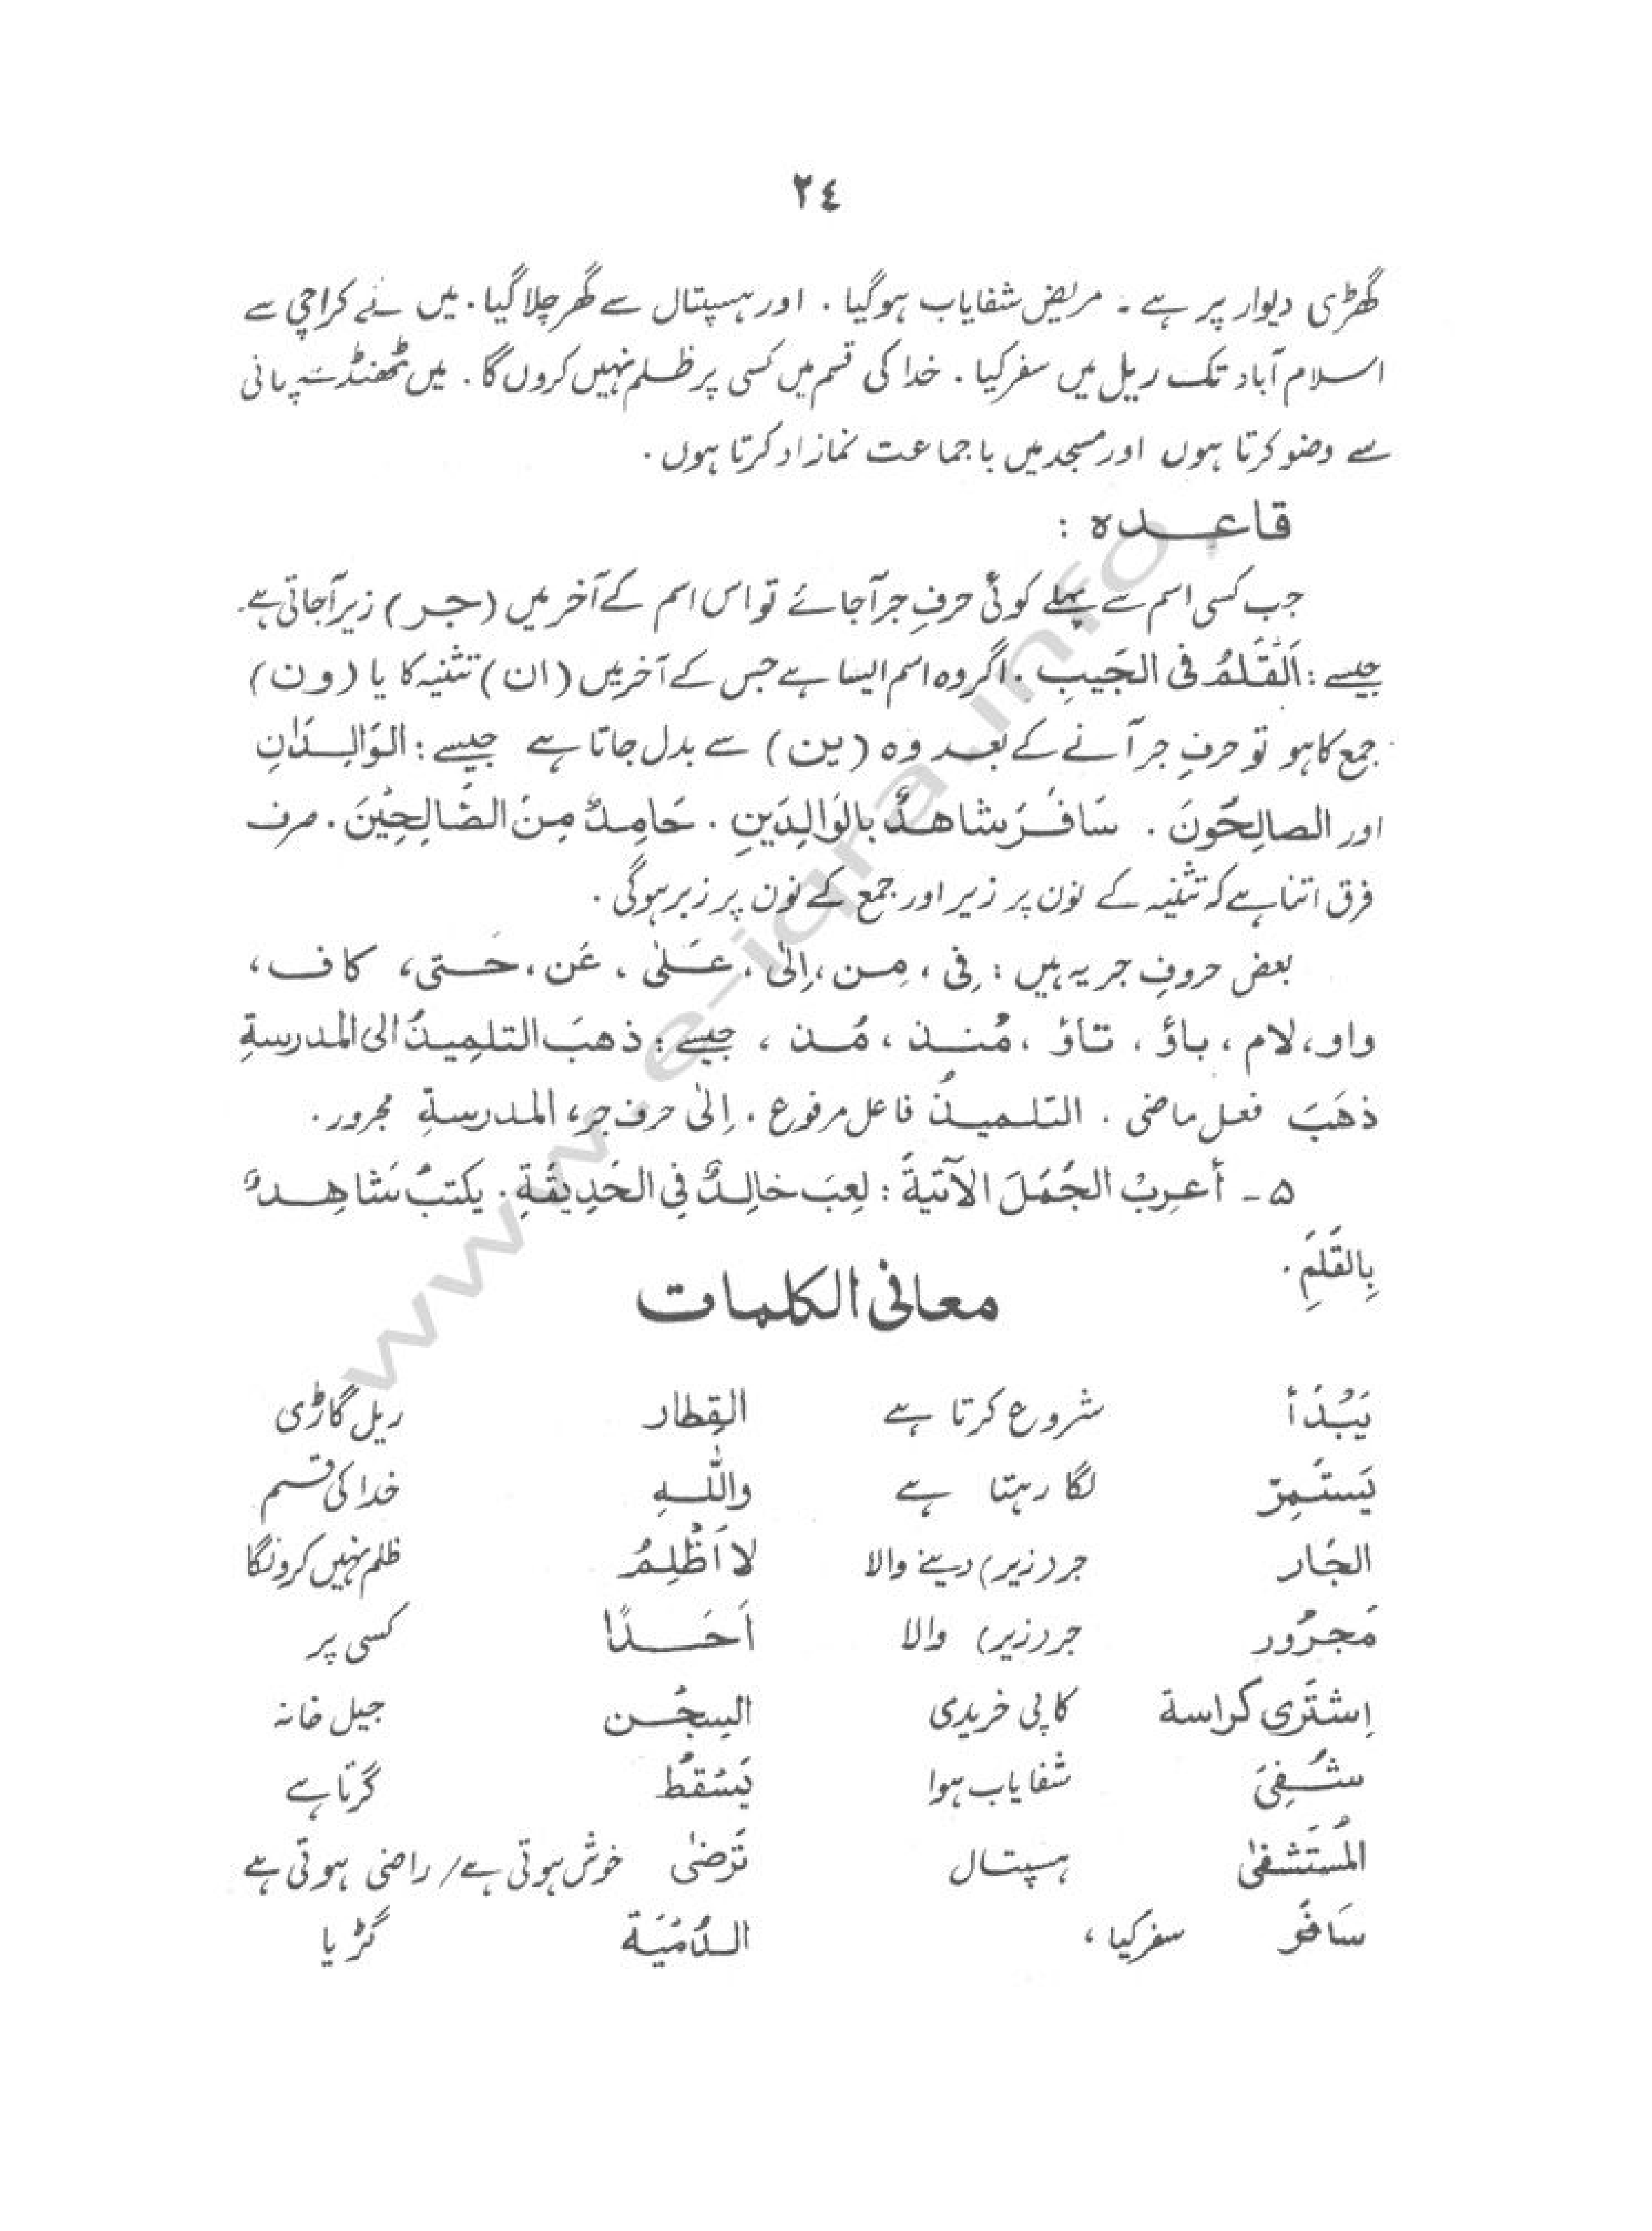 ٢٤
گھڑی دیوار پر ہے ۔ مریض شفایاب ہوگیا . اور ہسپتال سے گھر چلا گیا . میں نے کراچی سے
اسلام آباد تک ریل میں سفر کیا . خدا کی قسم میں کسی پر ظلم نہیں کروں گا . میں ٹھنڈے پانی
سے وضو کرتا ہوں اور مسجد میں با جماعت نماز ادا کرتا ہوں .
قاعدہ :
جب کسی اسم سے پہلے کوئی حرفِ جر آجائے تو اس اسم کے آخر میں (جر) زیر آجاتی ہے۔
جیسے : اَلْقَلَمُ فی الجَیبِ . اگر وہ اسم ایسا ہے جس کے آخر میں (ان) تثنیہ کا یا (ون)
جمع کا ہو تو حرفِ جر آنے کے بعد وہ (ین) سے بدل جاتا ہے جیسے : الوَالِدَانِ
اور الصالِحُونَ . سَافَرَ شاھدٌ بالوَالِدَینِ . حَامِدٌ مِنَ الصَّالِحِیْنَ . صرف
فرق اتنا ہے کہ تثنیہ کے نون پر زیر اور جمع کے نون پر زبر ہوگی .
بعض حروفِ جر یہ ہیں : فِی ، مِن ، إلیٰ ، عَلیٰ ، عَن ، حَتی، کاف ،
واو، لام ، باؤ ، تاؤ ، مُنذ ، مُذ ، جیسے : ذھبَ التلمِیذُ الی المدرسةِ
ذھَبَ فعل ماضی . التلمیذُ فاعل مرفوع . إلیٰ حرف جر، المدرسةِ مجرور .
۵ - أعرِبْ الجُمَلَ الآتیةَ : لعِبَ خالِدٌ فِی الحَدِیقَةِ . یکتبُ شَاھِدٌ
بِالقَلَمِ .
معانی الکلمات
یَبْدَأ شروع کرتا ہے القِطار ریل گاڑی
یَستَمِرّ لگا رہتا ہے واللّٰہِ خدا کی قسم
الجَار جر (زیر) دینے والا لا اَظْلِمُ ظلم نہیں کرونگا
مَجرُور جر (زیر) والا اَحَدًا کسی پر
اِشتَری کراسة کاپی خریدی السِجْن جیل خانہ
شُفِیَ شفایاب ہوا یَسْقُطُ گرتا ہے
المُستَشفیٰ ہسپتال تَرضیٰ خوش ہوتی ہے / راضی ہوتی ہے
سَافَرَ سفر کیا ، الدُمْیَة گڑیا
www.e-iqra.info